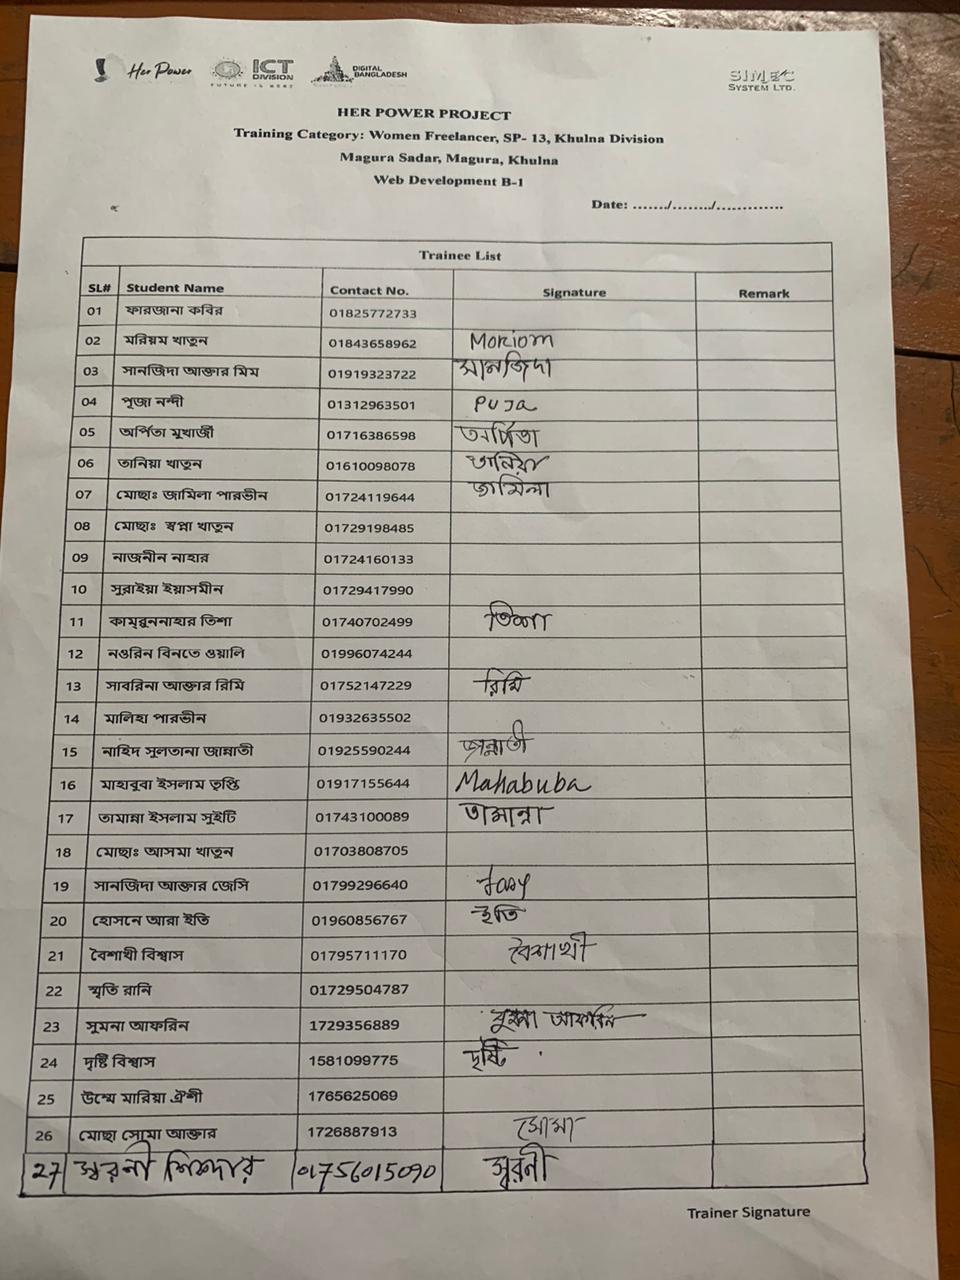 Her Power
ICT
DIVISION
FUTURE IS HERE
DIGITAL
BANGLADESH
SIMEC
SYSTEM LTD.
HER POWER PROJECT
Training Category: Women Freelancer, SP- 13, Khulna Division
Magura Sadar, Magura, Khulna
Web Development B-1
Date: ......./......../.............
Trainee List
SL# Student Name Contact No. Signature Remark
01 ফারজানা কবির 01825772733
02 মরিয়ম খাতুন 01843658962 Moriom
03 সানজিদা আক্তার মিম 01919323722 সানজিদা
04 পূজা নন্দী 01312963501 Puja
05 অর্পিতা মুখার্জী 01716386598 অর্পিতা
06 তানিয়া খাতুন 01610098078 তানিয়া
07 মোছাঃ জামিলা পারভীন 01724119644 জামিলা
08 মোছাঃ স্বপ্না খাতুন 01729198485
09 নাজনীন নাহার 01724160133
10 সুরাইয়া ইয়াসমীন 01729417990
11 কামরুননাহার তিশা 01740702499 তিশা
12 নওরিন বিনতে ওয়ালি 01996074244
13 সাবরিনা আক্তার রিমি 01752147229 রিমি
14 মালিহা পারভীন 01932635502
15 নাহিদ সুলতানা জান্নাতী 01925590244 জান্নাতী
16 মাহাবুবা ইসলাম তৃপ্তি 01917155644 Mahabuba
17 তামান্না ইসলাম সুইটি 01743100089 তামান্না
18 মোছাঃ আসমা খাতুন 01703808705
19 সানজিদা আক্তার জেসি 01799296640
20 হোসনে আরা ইতি 01960856767 ইতি
21 বৈশাখী বিশ্বাস 01795711170 বৈশাখী
22 স্মৃতি রানি 01729504787
23 সুমনা আফরিন 1729356889 সুমনা আফরিন
24 দৃষ্টি বিশ্বাস 1581099775 দৃষ্টি
25 উম্মে মারিয়া ঐশী 1765625069
26 মোছা সোমা আক্তার 1726887913 সোমা
27 স্বরনী শিকদার 01756015090 স্বরনী
Trainer Signature